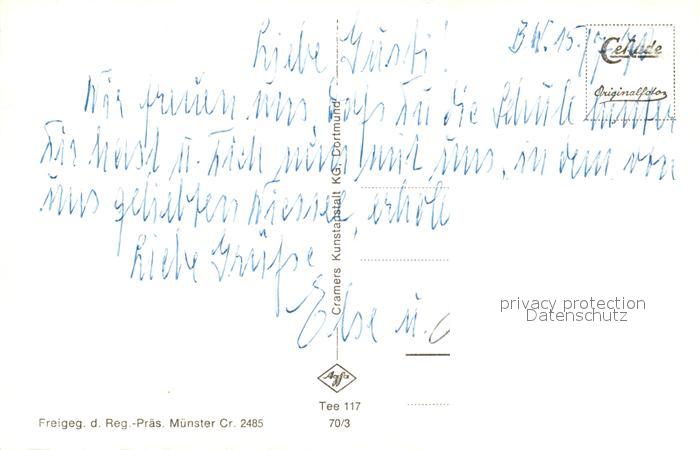 Liebe Gusti! B.W. 15.
Wir freuen uns daß Du die Schule hinter
Dir hast u. Dich nun mit uns, in dem von
uns geliebten Wiesen, erhole
Liebe Grüße
Else u.
Cekade
Originalfoto
Cramers Kunstanstalt KG, Dortmund
privacy protection
Datenschutz
Agfa
Tee 117
Freigeg. d. Reg.-Präs. Münster Cr. 2485 70/3